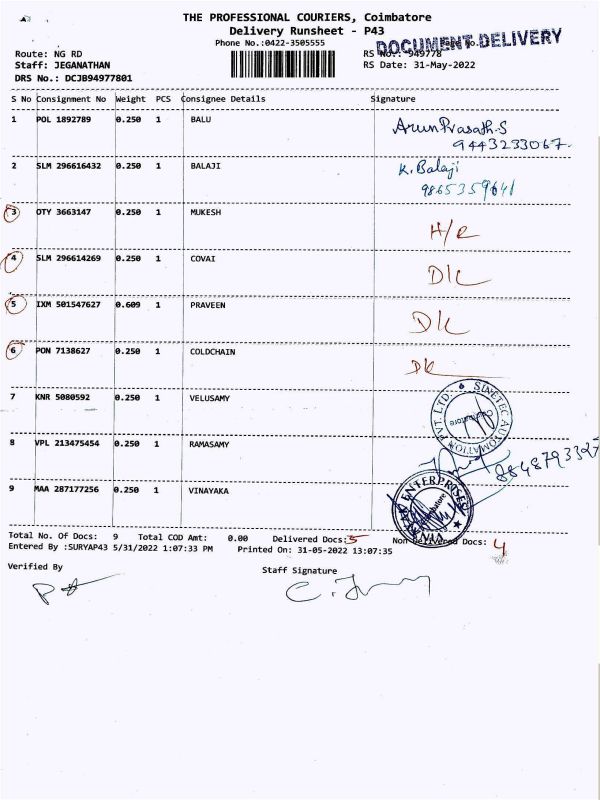 THE PROFESSIONAL COURIERS, Coimbatore
Delivery Runsheet - P43
Phone No.:0422-3505555
DOCUMENT DELIVERY
Route: NG RD
RS No.: 949778
Staff: JEGANATHAN
RS Date: 31-May-2022
DRS No.: DCJB94977801
S No Consignment No Weight PCS Consignee Details Signature
1 POL 1892789 0.250 1 BALU ArunPrasath.S
9443233067.
2 SLM 296616432 0.250 1 BALAJI K. Balaji
9865359641
3 OTY 3663147 0.250 1 MUKESH H/R
4 SLM 296614269 0.250 1 COVAI D/L
5 IXM 501547627 0.609 1 PRAVEEN D/L
6 PON 7138627 0.250 1 COLDCHAIN D/L
7 KNR 5080592 0.250 1 VELUSAMY
SINETEC AUTOMATION PVT. LTD.
Coimbatore
8 VPL 213475454 0.250 1 RAMASAMY
8848793327
9 MAA 287177256 0.250 1 VINAYAKA
ENTERPRISES
Total No. Of Docs: 9 Total COD Amt: 0.00 Delivered Docs: 5 Non-Delivered Docs: 4
Entered By :SURYAP43 5/31/2022 1:07:33 PM Printed On: 31-05-2022 13:07:35
Verified By
Staff Signature